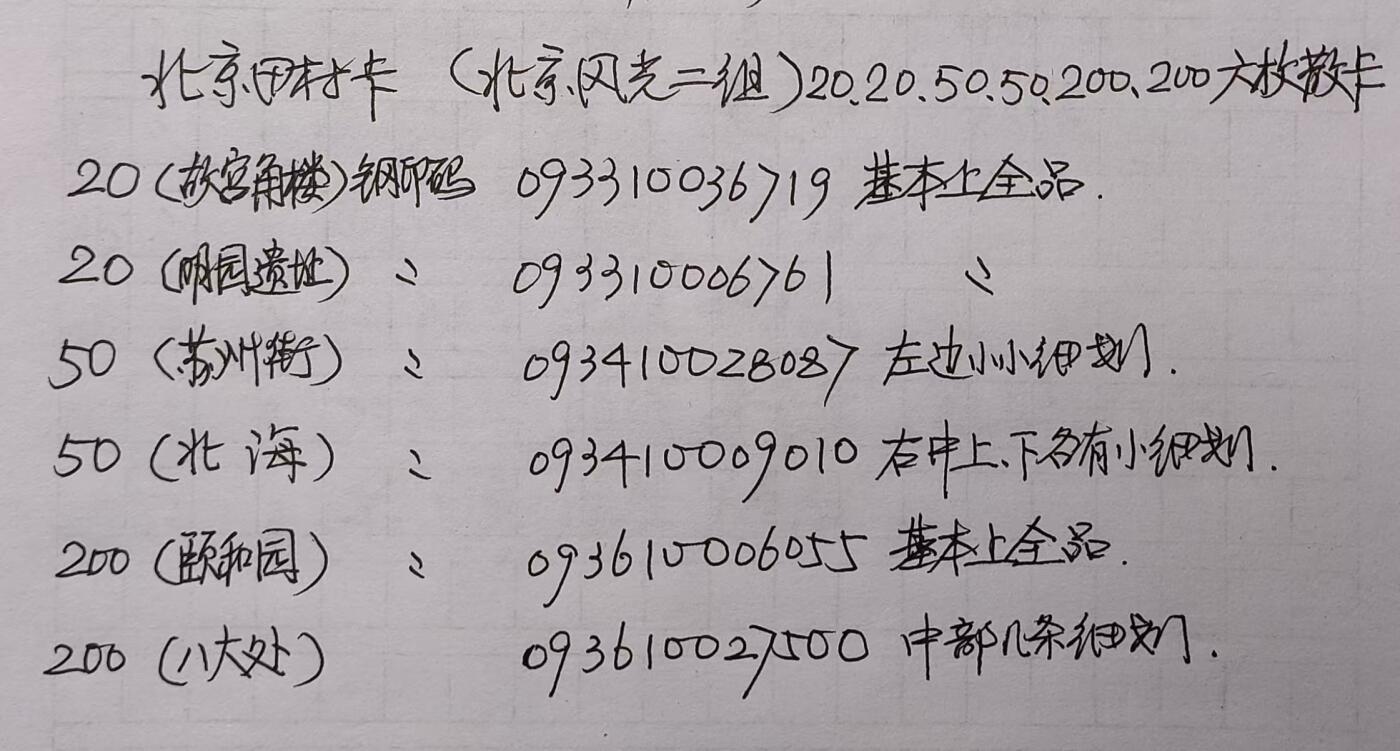 北京田村卡（北京风光二组）20、20、50、50、200、200六枚散卡
20（故宫角楼）钢印码 093310036719 基本上全品.
20（明园遗址）〃 093310006761 〃
50（苏州街）〃 093410028087 左边小小细划.
50（北海）〃 093410009010 右中上、下各有小细划.
200（颐和园）〃 093610006055 基本上全品.
200（八大处） 093610027500 中部几条细划.